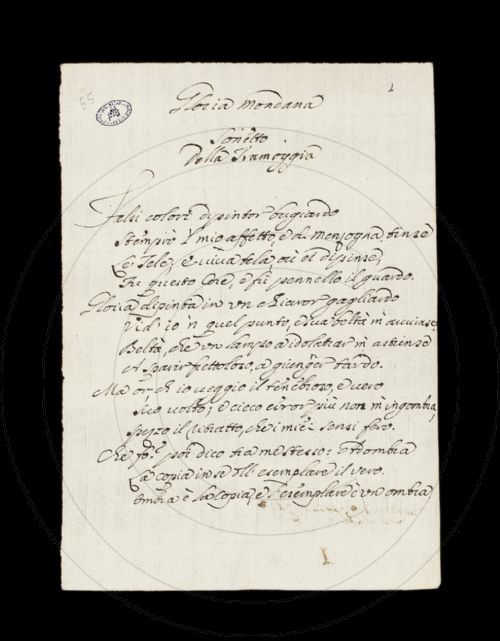 55
1
Gloria mondana
Sonetto
della Tramoggia
Falsi colori dipintor bugiardo
Stemprò mio affetto, e di menzogna tinse
e viva tela ei dipinse,
Fu questo Core, e fù pennello il guardo.
Gloria dipinta in un chiaror gagliardo
Vid' io 'n quel punto, e sua beltà m' avvinse
Beltà, che un lampo a idolatrar m' astrinse
spavir frettoloso, a giunger tardo.
Ma or ch' io veggio il tenebroso, e vero
suo volto; e cieco error più non m' ingombra,
spezzo il ritratto, che i miei sensi
Che poi dico fra me stesso:
La copia in se dell' esemplare il vero
ombra è la copia, e l' esemplare è un ombra
I